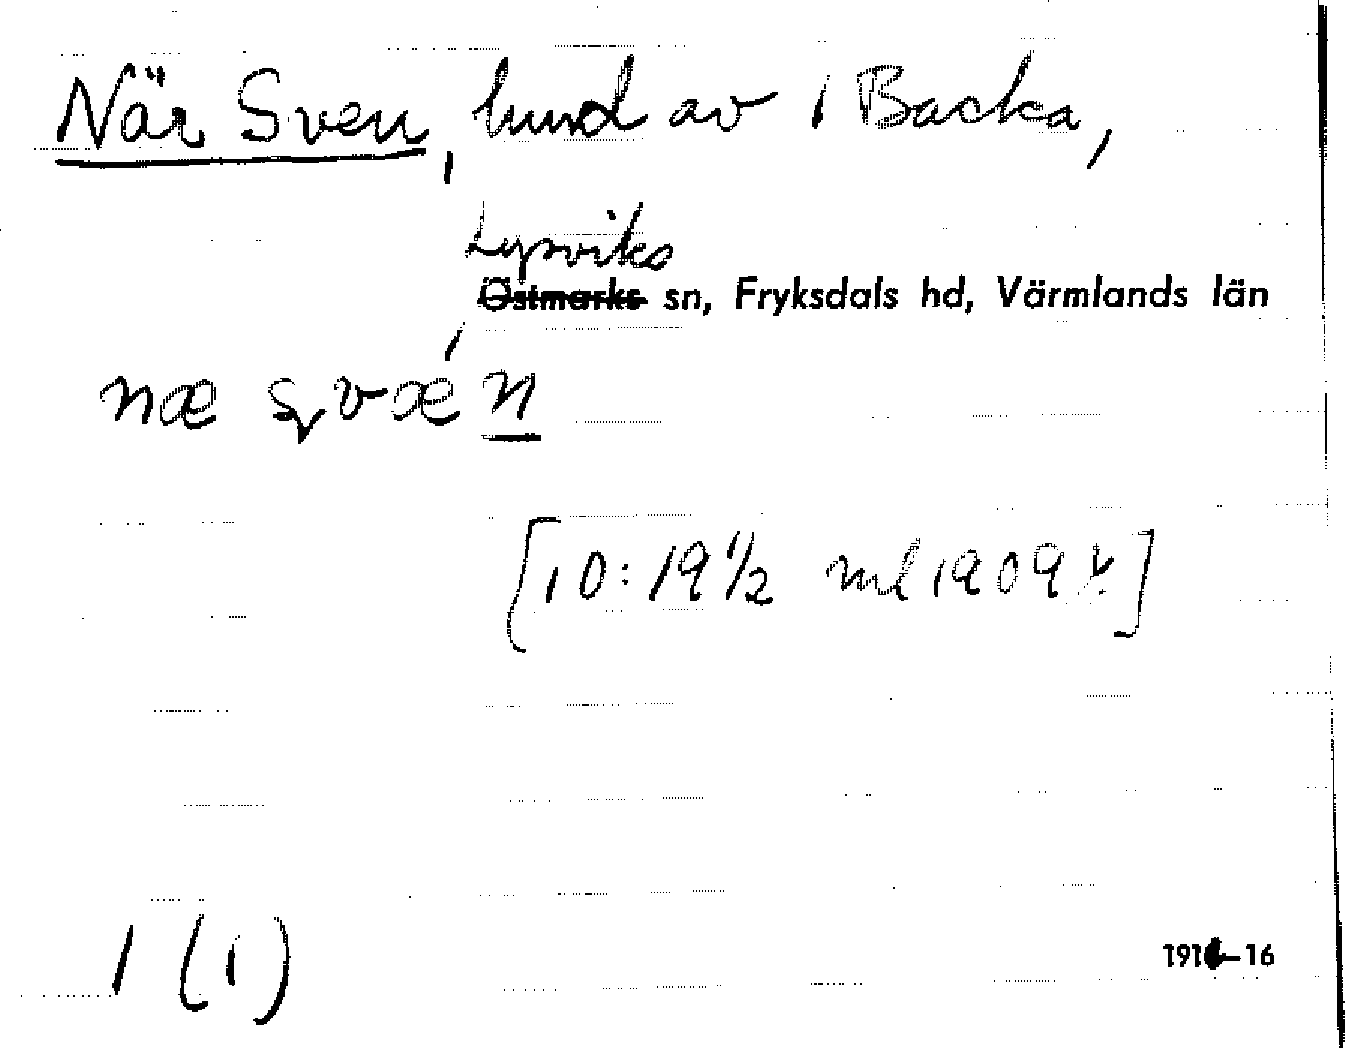 När Sven, hund av 1 Backa,
Lysviks
Östmarks sn, Fryksdals hd, Värmlands län
næ svæn
[10:19½ ml 1909 ]
1 (1)
191 –16